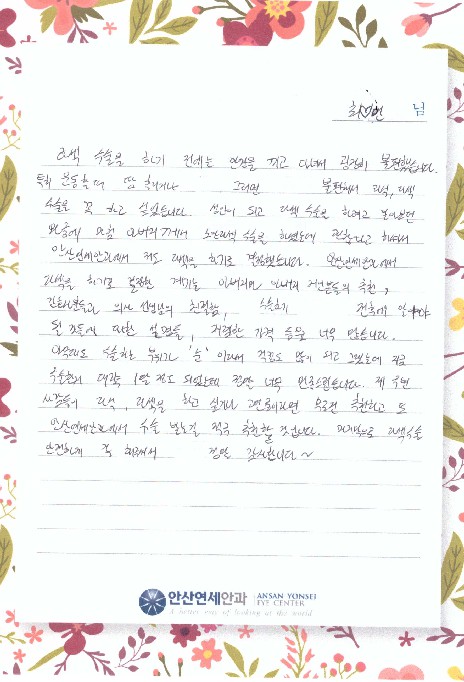 님
라섹 수술을 하기 전에는 안경을 끼고 다녀서 굉장히 불편했습니다.
특히 운동할때 땀 불편해서 라식, 라섹
수술을 꼭 하고 싶었습니다. 되고 라섹 수술을 하려고
와중에 아버지께서 노안라식 수술을 하셨는데 하셔서
안산연세안과에서 저도 라섹을 하기로 결정했습니다. 안산연세안과에서
라섹을 하기로 결정한 계기는 아버지와 지인분들의 추천,
간호사분들과 의사 선생님의 친절함, 수술하기 전후에
될 것들에 대한 설명들, 저렴한 가격 등등 너무 많습니다.
아무래도 수술하는 부위가 '눈' 이라서 걱정도 많이 되고 했는데 지금
수술한지 대략 1달 정도 되었는데 정말 너무 만족스럽습니다. 제 주변
사람들이 라식, 라섹을 하고 싶거나 고민중이라면 무조건 추천하고 또
안산연세안과에서 수술 받는걸 적극 추천할 것입니다. 마지막으로 라섹수술
안전하게 잘 해주셔서 정말 감사합니다~
안산연세안과 ANSAN YONSEI EYE CENTER
A better way of looking at the world